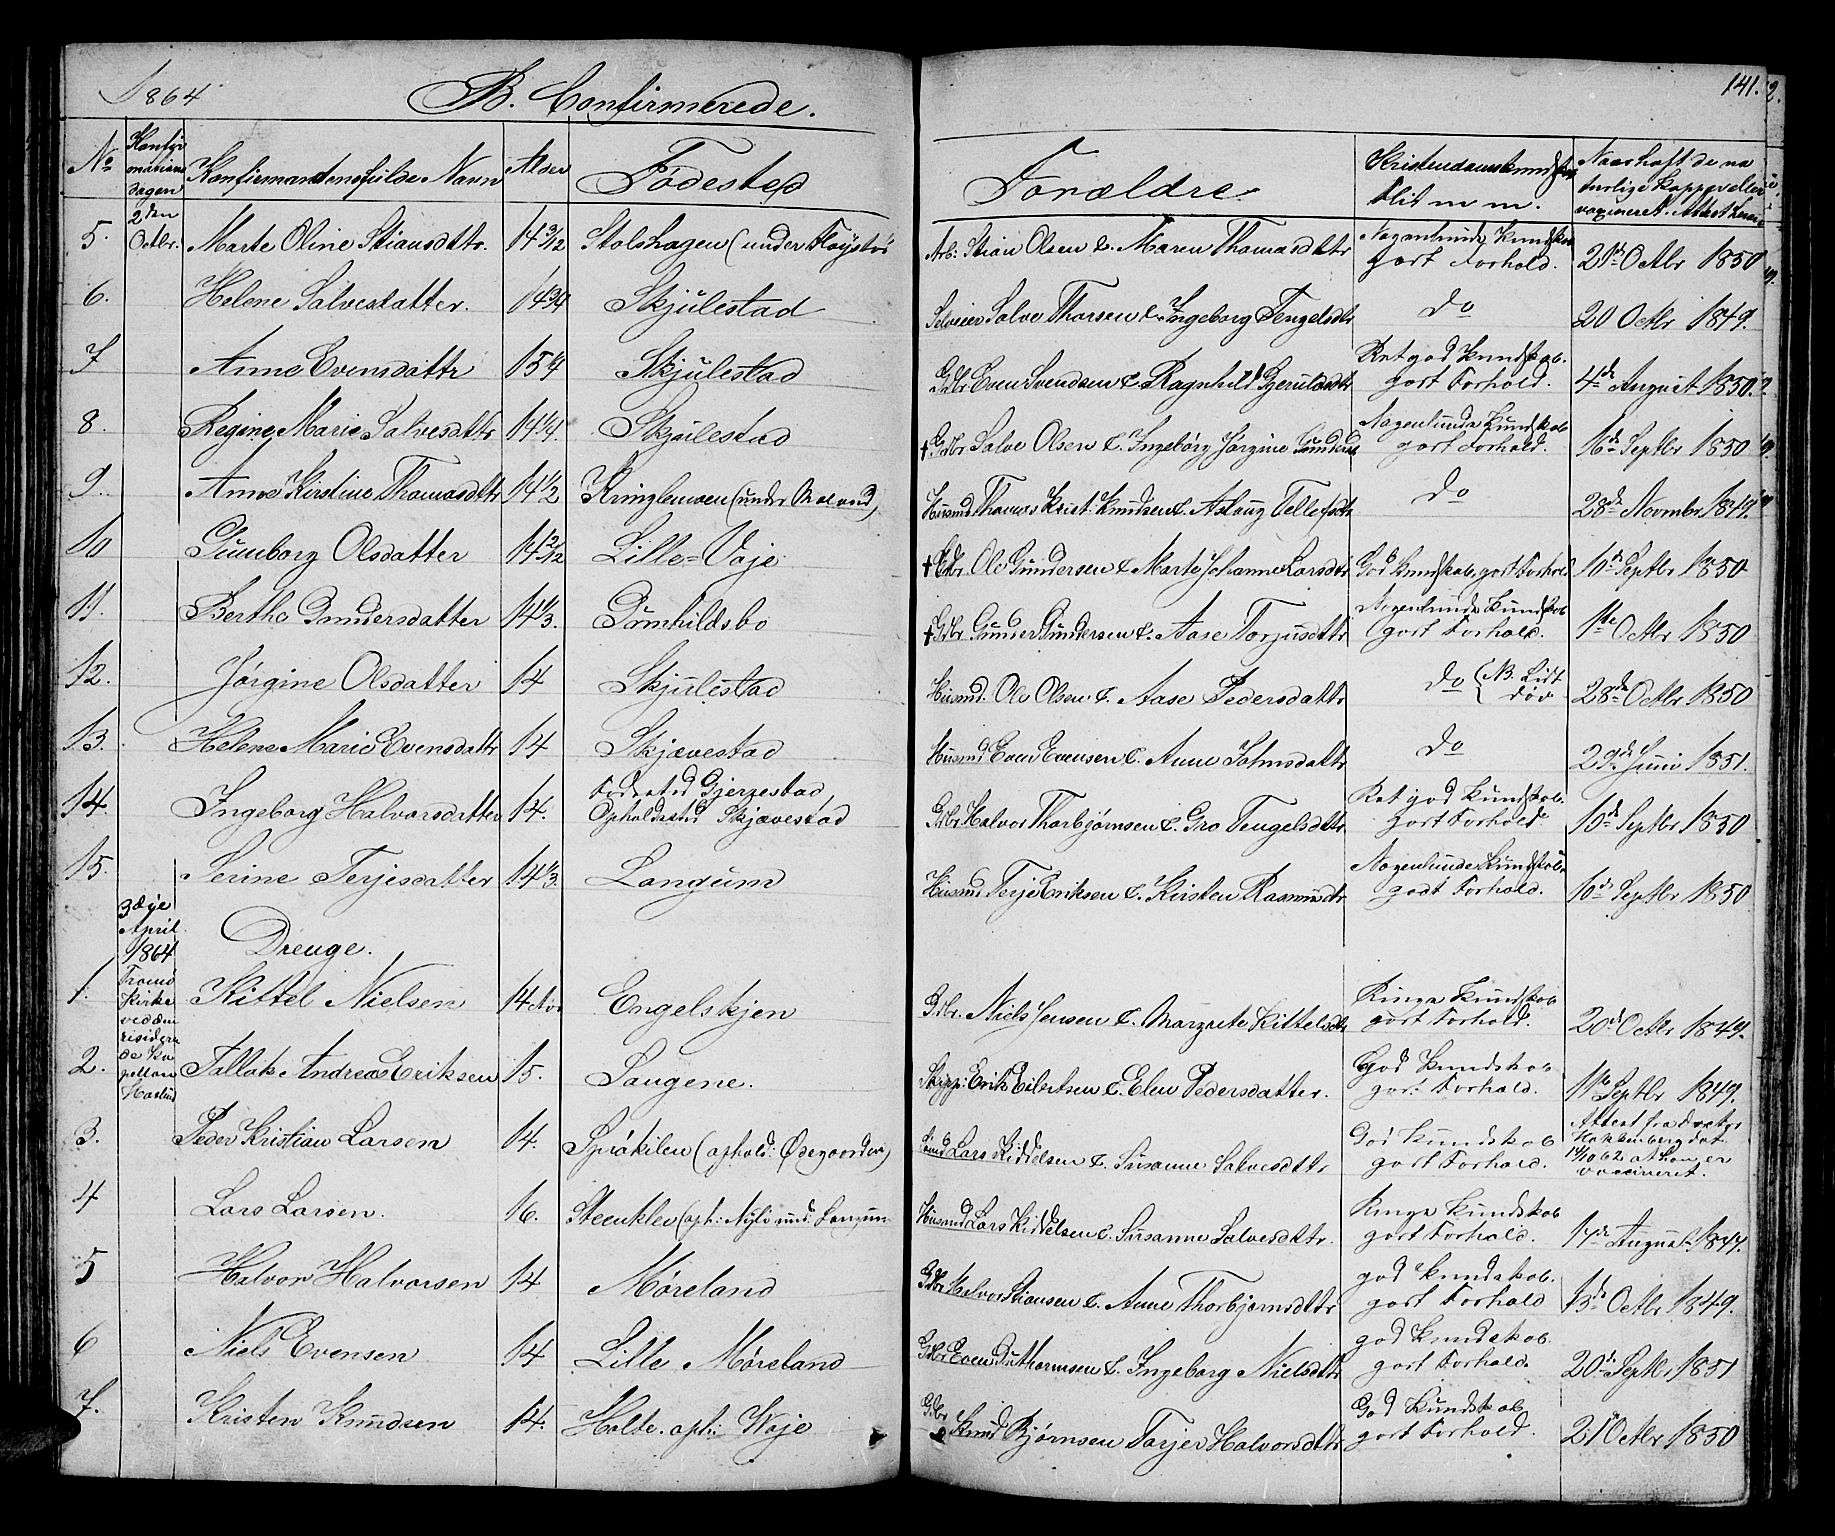 1864 B. Confirmerede. 141.
No Konfirmations dagen Konfirmandens fulde Navn Alder Fødested Forældre Kristendomskundskab Flid m. m. Naar haft de naturlige Kopper eller vaxineret. Attest
5. 2den Octbr. Marte Oline Stiansdttr. 14 3/12 Stolshagen (under Fløystøl Arb: Stian Olsen & Maren Thomasdttr Nogenlunde Kundskab godt Forhold. 21de Octbr 1850
6. Helene Salvesdatter. 14 3/4 Skjulestad Selveier Salve Thorsen & Ingeborg Tengelsdtr do 20 Octbr 1849.
7 Anne Evensdattr 15 1/4 Skjulestad Gdbr Even Svendsen & Ragnhild Gjeruldsdtr Ret god Kundskab. godt Forhold. 4de August 1850.
8. Regine Marie Salvesdattr 14 1/4 Skjulestad † Gdbr Salve Olsen & Ingeborg Jørgine Gundersd Nogenlunde Kundskab godt Forhold. 16de Septbr 1850
9. Anne Kirstine Thomasdttr 14 1/2 Kringlemoen (under Molvand) Husmd Thomas Krist: Knudsen & Aslaug Tellefsdtr do 28de Novmbr 1849.
10 Gunborg Olsdatter 14 2/12 Lille=Voje † Gdbr Ole Gundersen & Marte Johanne Larsdtr God Kundskab, godt Forhold 10de Septbr 1850
11. Berthe Gundersdatter 14 1/3. Gunhildsbo † Gdbr Gunder Gundersen & Aase Torjusdttr Nogenlunde Kundskab godt Forhold. 1ste Octbr 1850
12. Jørgine Olsdatter 14 Skjulestad Husmd. Ole Olsen & Aase Pedersdattr do (NB. Lidt døv 28de Octbr 1850
13. Helene Marie Evensdattr 14 Skjævestad Husmd Even Evensen & Anne Salmsdattr do 29de Juni 1851.
14. Ingeborg Halvorsdatter 14. Fødested Gjerrestad, Opholdssted Skjævestad Gdbr Halvor Thorbjørnsen & Gro Tengelsdttr Ret god Kundskab. godt Forhold. 10de Septbr 1850
15. Serine Terjesdatter 14 1/3. Langum Husmd Terje Eriksen & Kirsten Rasmusdtr Nogenlunde Kundskab godt Forhold. 10de Septbr 1850
3die April 1864 Drenge.
Tromø Kirke ved den residerende Kapellan
1. Kittel Nielsen 14 Engelskjen Gdbr. Niels Jensen & Margrete Kittelsdtr Ringe Kundskab godt Forhold. 20de Octbr 1849.
2. Tallak Andreas Eriksen 15. Saugene. Skipp: Erik Eilertsen & Elen Pedersdatter. God Kundskab godt Forhold. 11te Septbr 1849.
3. Peder Kristian Larsen 14. Spirekilen (ophold: Ødegaarden) Lars Kiddelsen & Susanne Salvesdttr God Kundskab godt Forhold. Attest fra doctor dat 14/10 62 at han er vaccineret.
4 Lars Larsen. 16. Steenklev (oph: Myli und: Langum Husmd Lars Kiddelsen & Susanne Salvesdttr. Ringe Kundskab godt Forhold. 14de August 1847.
5 Halvor Halvorsen 14 Møreland Gdbr Halvor Stiansen & Anne Thorbjørnsdttr god Kundskab. godt Forhold 13de Octbr 1849.
6 Niels Evensen 14 Lille Møreland Gdbr Even Guthormsen & Ingeborg Nielsdttr god Kundskab. godt Forhold 20de Septbr 1851
7. Kristen Knudsen 14. Holte. oph: Woje Gdbr Knud Bjørnsen Torjer Halvorsdttr God Kundskab godt Forhold. 21de Octbr 1850